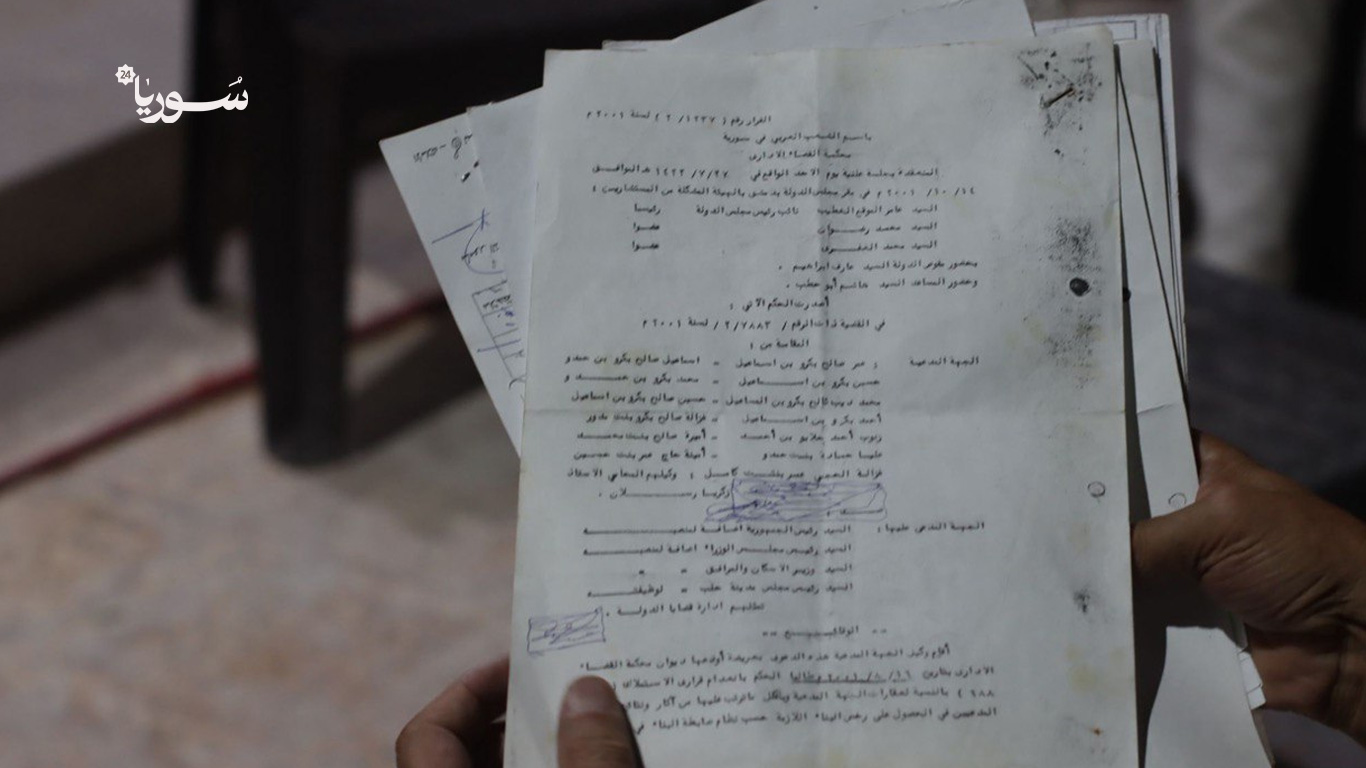 سوريا 24
القرار رقم ( ١٢٣٧ / ٢ ) لسنة ٢٠٠١ م
باسم الشعب العربي في سورية
محكمة القضاء الاداري
المنعقدة بجلسة علنية يوم الاحد الواقع في ١٤٢٢/٧/٢٧ هـ الموافق
١٤/ ١٠/ ٢٠٠١ م في مقر مجلس الدولة بدمشق بالهيئة المشكلة من المستشارين :
السيد نائب رئيس مجلس الدولة رئيسا
السيد محمد رضوان عضوا
السيد محمد عضوا
بحضور مفوض الدولة السيد عارف ابراهيم .
وحضور المساعد السيد حاتم أبو حطب .
أصدرت الحكم الآتي :
في القضية ذات الرقم / ٢/٧٨٨٣ / لسنة ٢٠٠١ م
المقامة من :
الجهة المدعية : عمر صالح بكرو بن اسماعيل - اسماعيل صالح بكرو بن حمدو
حسين بكرو بن اسماعيل - محمد بكرو بن حمدو
محمد ديب صالح بكرو بن اسماعيل - حسين صالح بكرو بن اسماعيل
أحمد بكرو بن اسماعيل - غزالة صالح بكرو بنت بدور
زينب أحمد بن أحمد - أميرة صالح بنت محمد
عليا حمادة بنت حمدو - أمينة حاج عمر بنت حسين
غزالة بنت كامل : وكيلهم المحامي الاستاذ
زكريا رسلان .
الجهة المدعى عليها : السيد رئيس الجمهورية اضافة لمنصبه
السيد رئيس مجلس الوزراء اضافة لمنصبه
السيد وزير الاسكان والمرافق " "
السيد رئيس مجلس مدينة حلب " لوظيفته
تمثلهم ادارة قضايا الدولة .
-- الوقائع --
أقام وكيل الجهة المدعية هذه الدعوى بعريضة أودعها ديوان محكمة القضاء
الاداري بتاريخ الحكم بانعدام قراري الاستملاك
٢٨٨ ) بالنسبة لعقارات الجهة المدعية وبكل ما ترتب عليها من آثار
المدعين في الحصول على رخص البناء اللازمة حسب نظام ضابطة البناء في